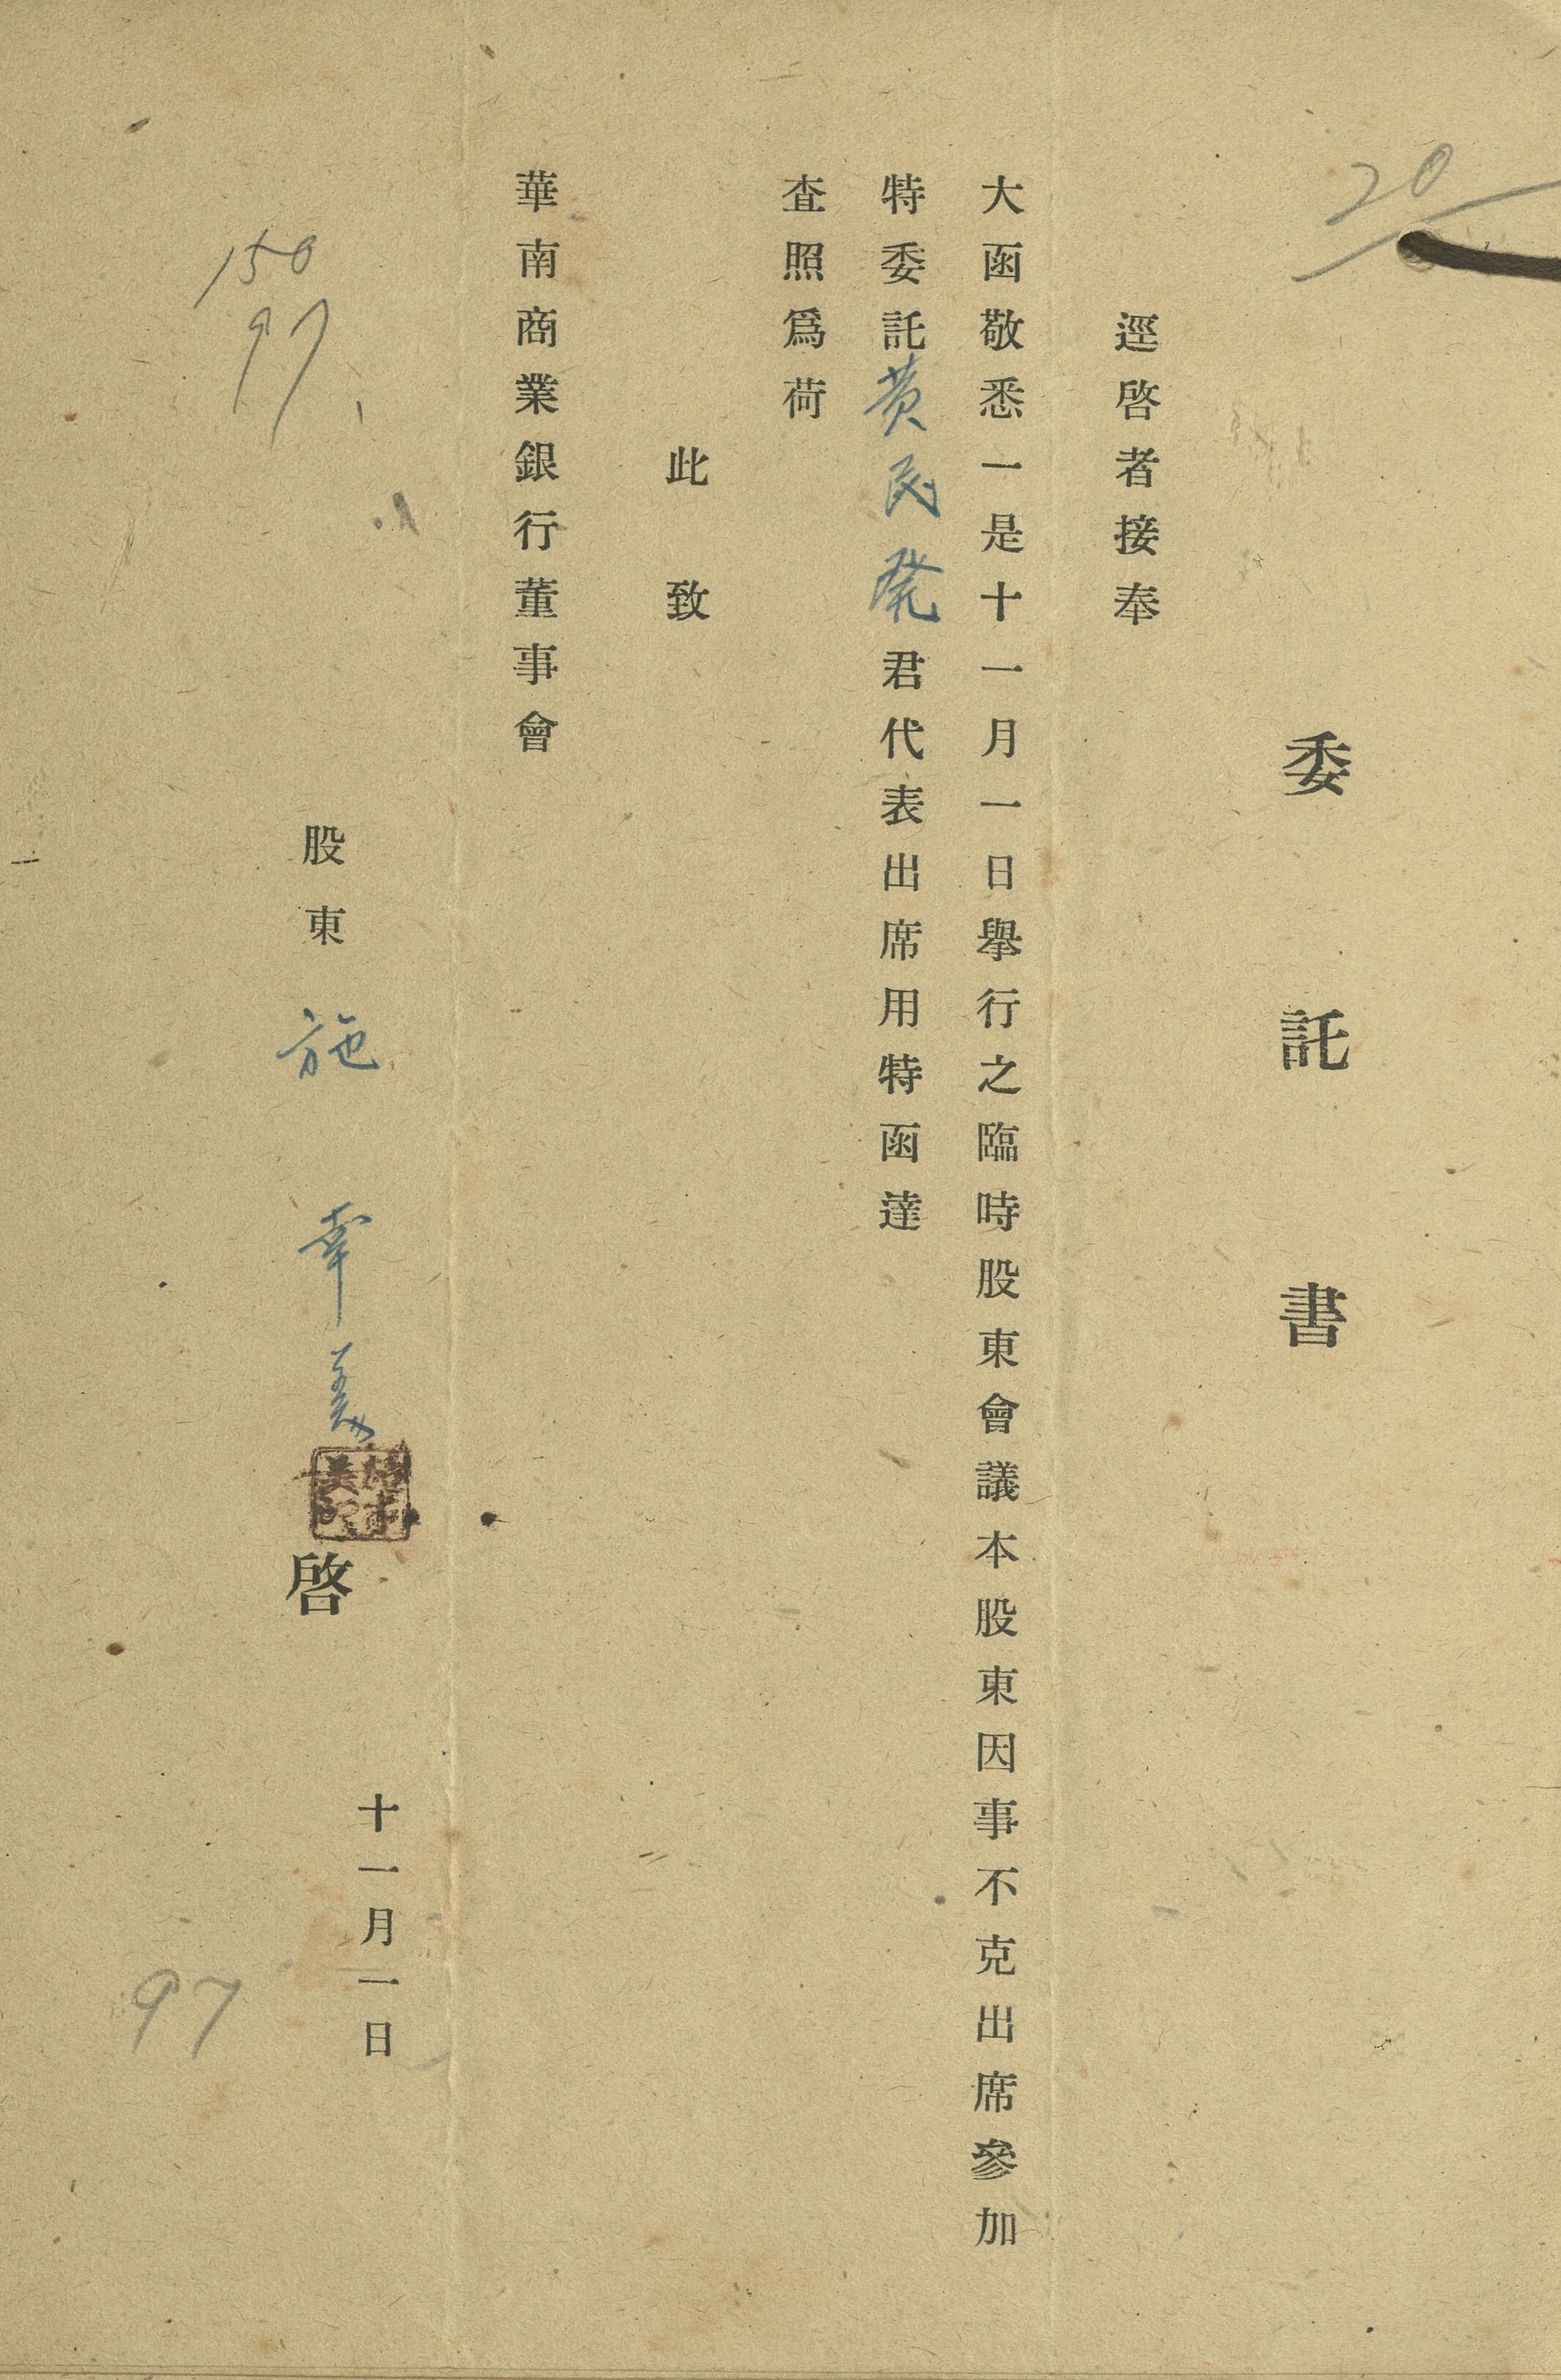 20
委託書
逕啓者接奉
大函敬悉一是十一月一日舉行之臨時股東會議本股東因事不克出席參加
特委託黄民発君代表出席用特函達
査照爲荷
此致
華南商業銀行董事會
150
97
股東 施 幸美 啓
十一月一日
97